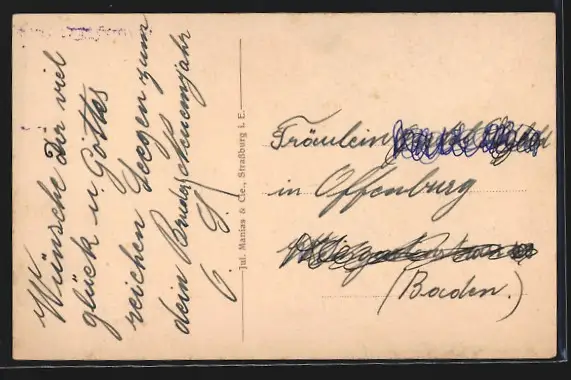 Wünsche Dir viel
glück u. Gottes
reichen Seegen zum
neuemjahr
dein Bruder
Jul. Manias & Cie., Straßburg i. E.
Fräulein
in Offenburg
(Baden.)